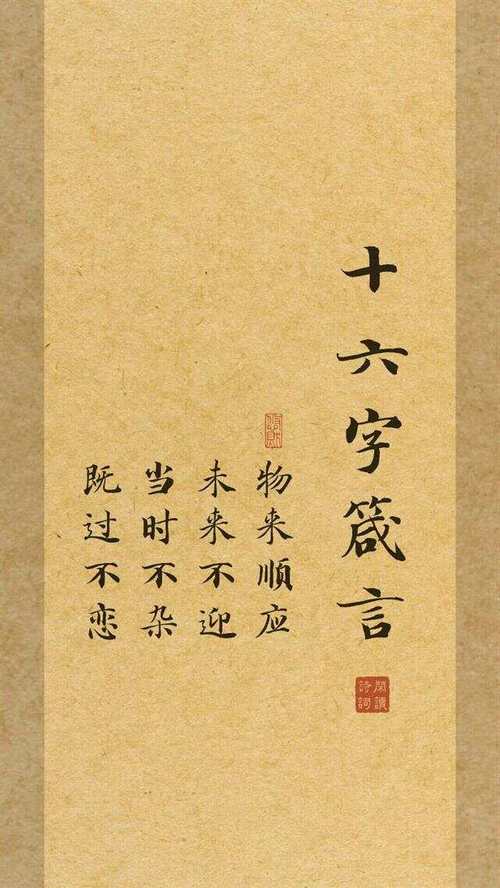 十六字箴言
物来順应
未来不迎
当时不杂
既过不恋
閑讀詩詞